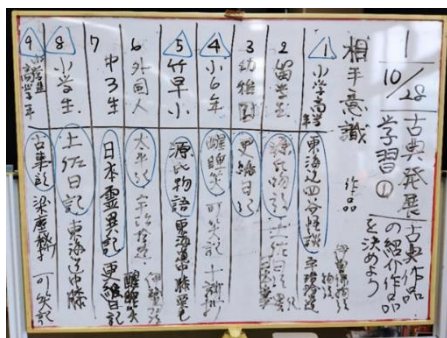 1
10/28
古典発展学習①
古典作品の紹介作品を決めよう
相手意識
作品
1 小学高学年 東海道四谷怪談 宇治拾遺
2 留学生 源氏物語 土佐日記
3 幼稚園 更級日記
4 小6年 醒睡笑 可笑記 十訓抄
5 竹早小 源氏物語 東海道中膝栗毛
6 外国人 太平記 宇治拾遺 醒睡笑
7 中3生 日本霊異記 更級日記
8 小学生 土佐日記 東海道中膝
9 小学生高学年 古事記 梁塵秘抄 可笑記